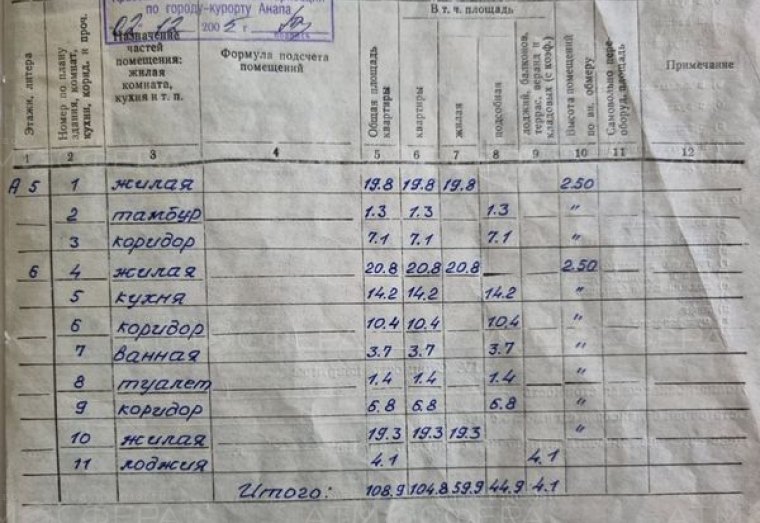 по городу-курорту Анапа
02 12 2005 г
В т. ч. площадь
Этажи, литера
Номер по плану здания, комнат, кухни, корид. и проч.
Назначение частей помещения: жилая комната, кухня и т. п.
Формула подсчета помещений
Общая площадь квартиры
квартиры
жилая
подсобная
лоджий, балконов, террас, веранд и кладовых (с коэф.)
Высота помещений по вн. обмеру
Самовольно пере- оборуд. площадь
Примечание
1 2 3 4 5 6 7 8 9 10 11 12
А 5 1 жилая 19.8 19.8 19.8 2.50
2 тамбур 1.3 1.3 1.3 "
3 коридор 7.1 7.1 7.1 "
6 4 жилая 20.8 20.8 20.8 2.50
5 кухня 14.2 14.2 14.2 "
6 коридор 10.4 10.4 10.4 "
7 ванная 3.7 3.7 3.7 "
8 туалет 1.4 1.4 1.4 "
9 коридор 6.8 6.8 6.8 "
10 жилая 19.3 19.3 19.3 "
11 лоджия 4.1 4.1
Итого: 108.9 104.8 59.9 44.9 4.1